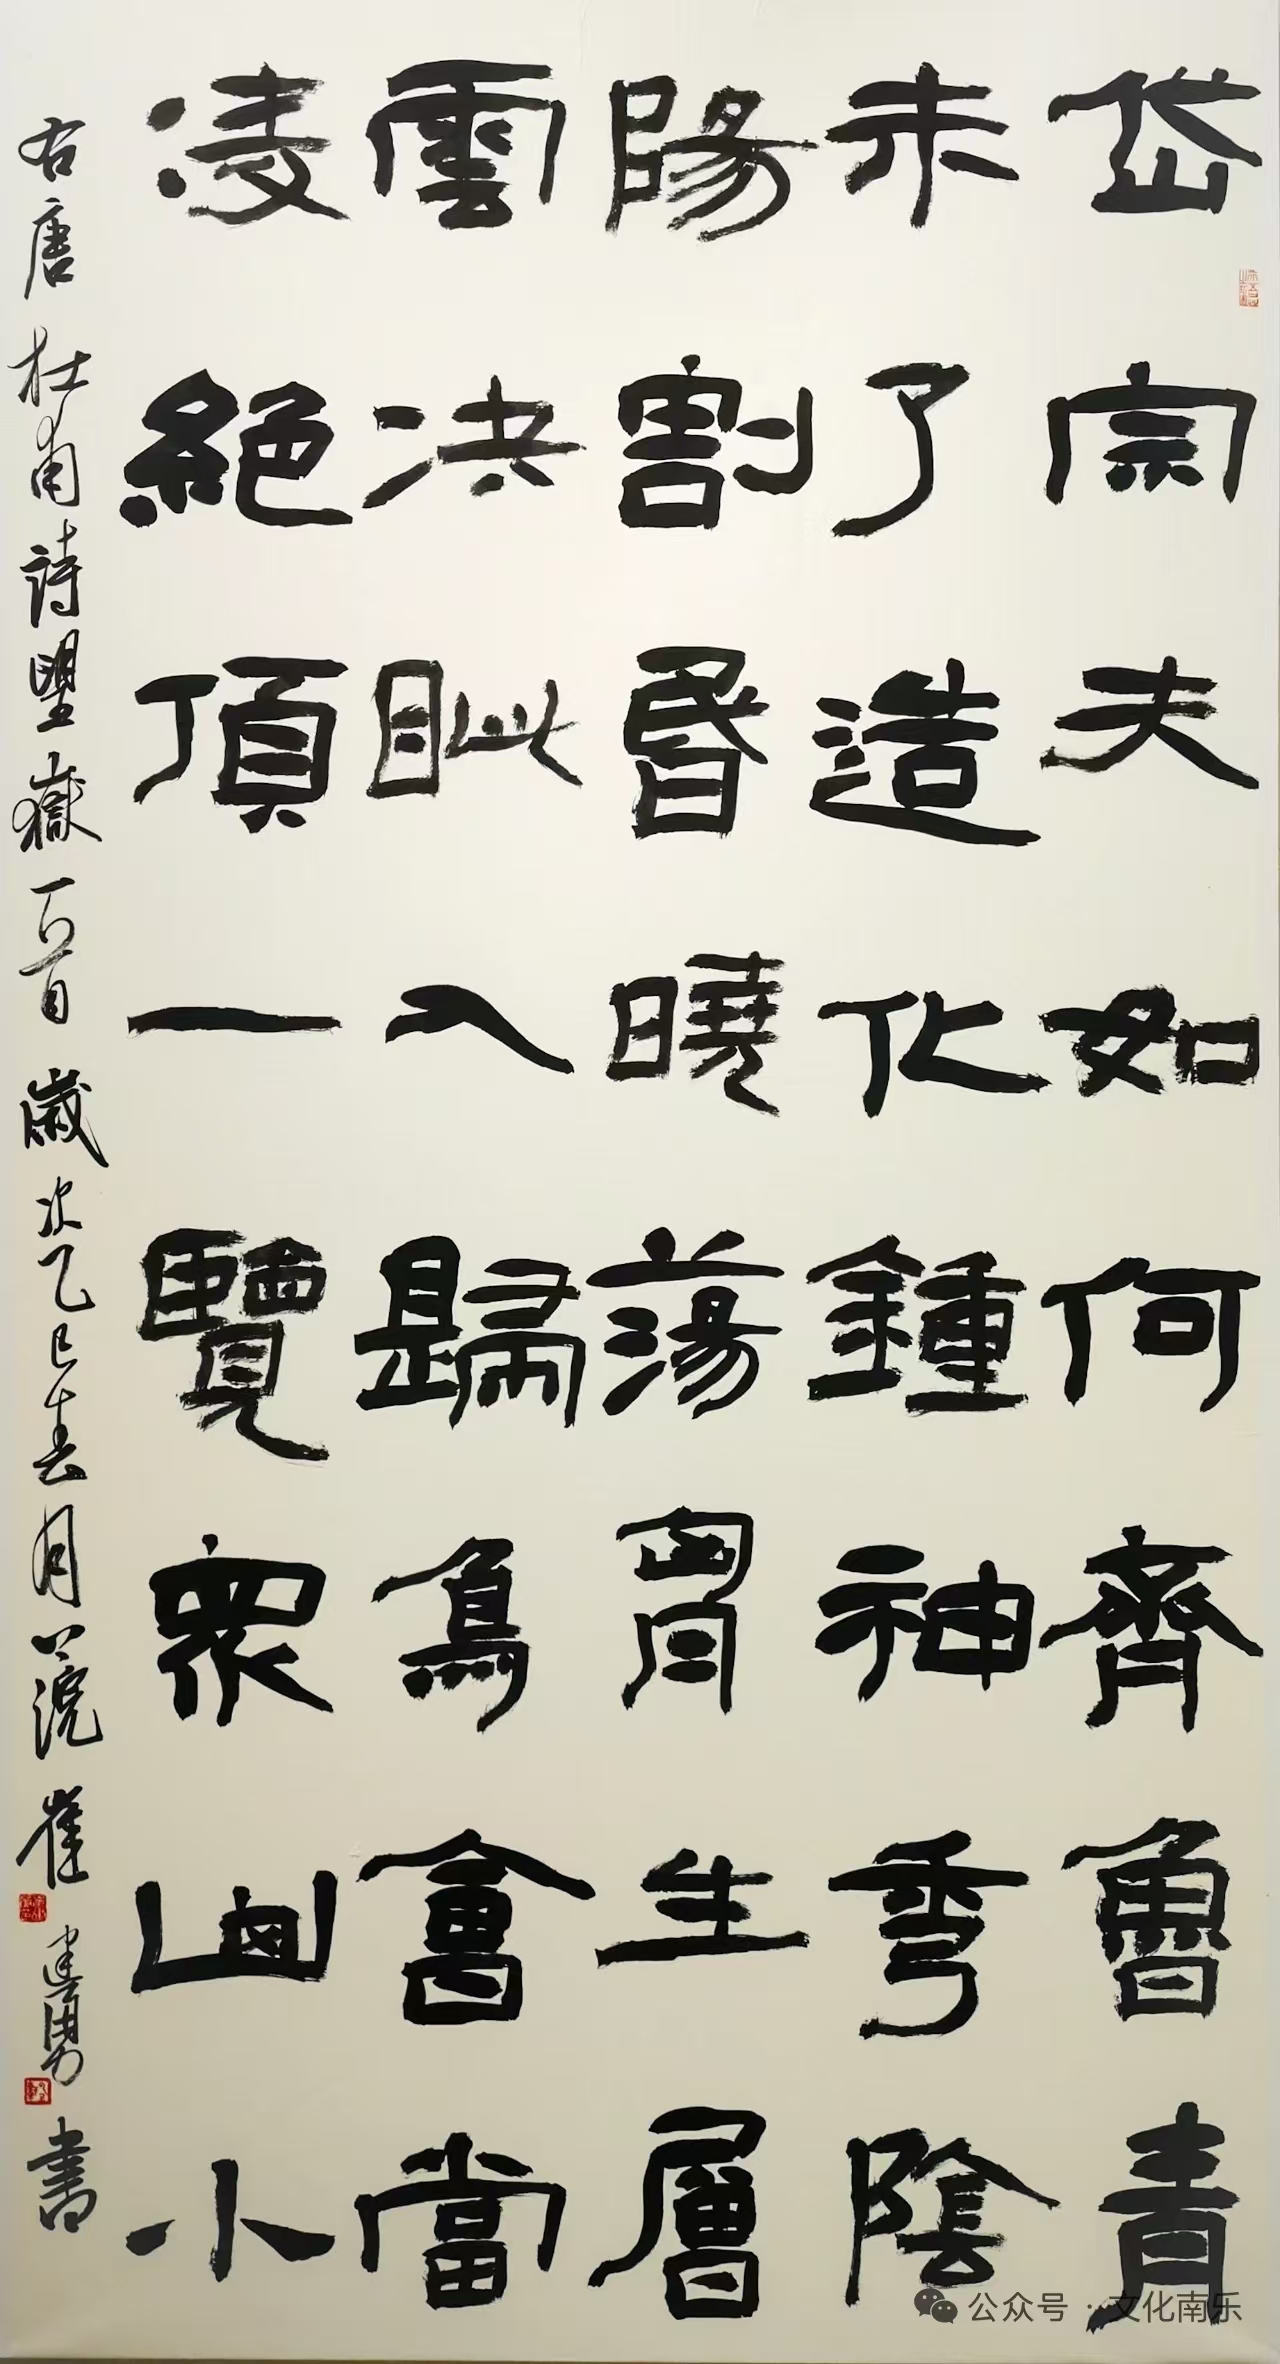 岱宗夫如何齊魯青
未了造化鍾神秀陰
陽割昬曉蕩胷生層
雲决眦入歸鳥會當
凌絶頂一覽衆山小
右唐杜甫詩望嶽一首 歲次乙巳春月 崔建勇書
公众号 · 文化南乐